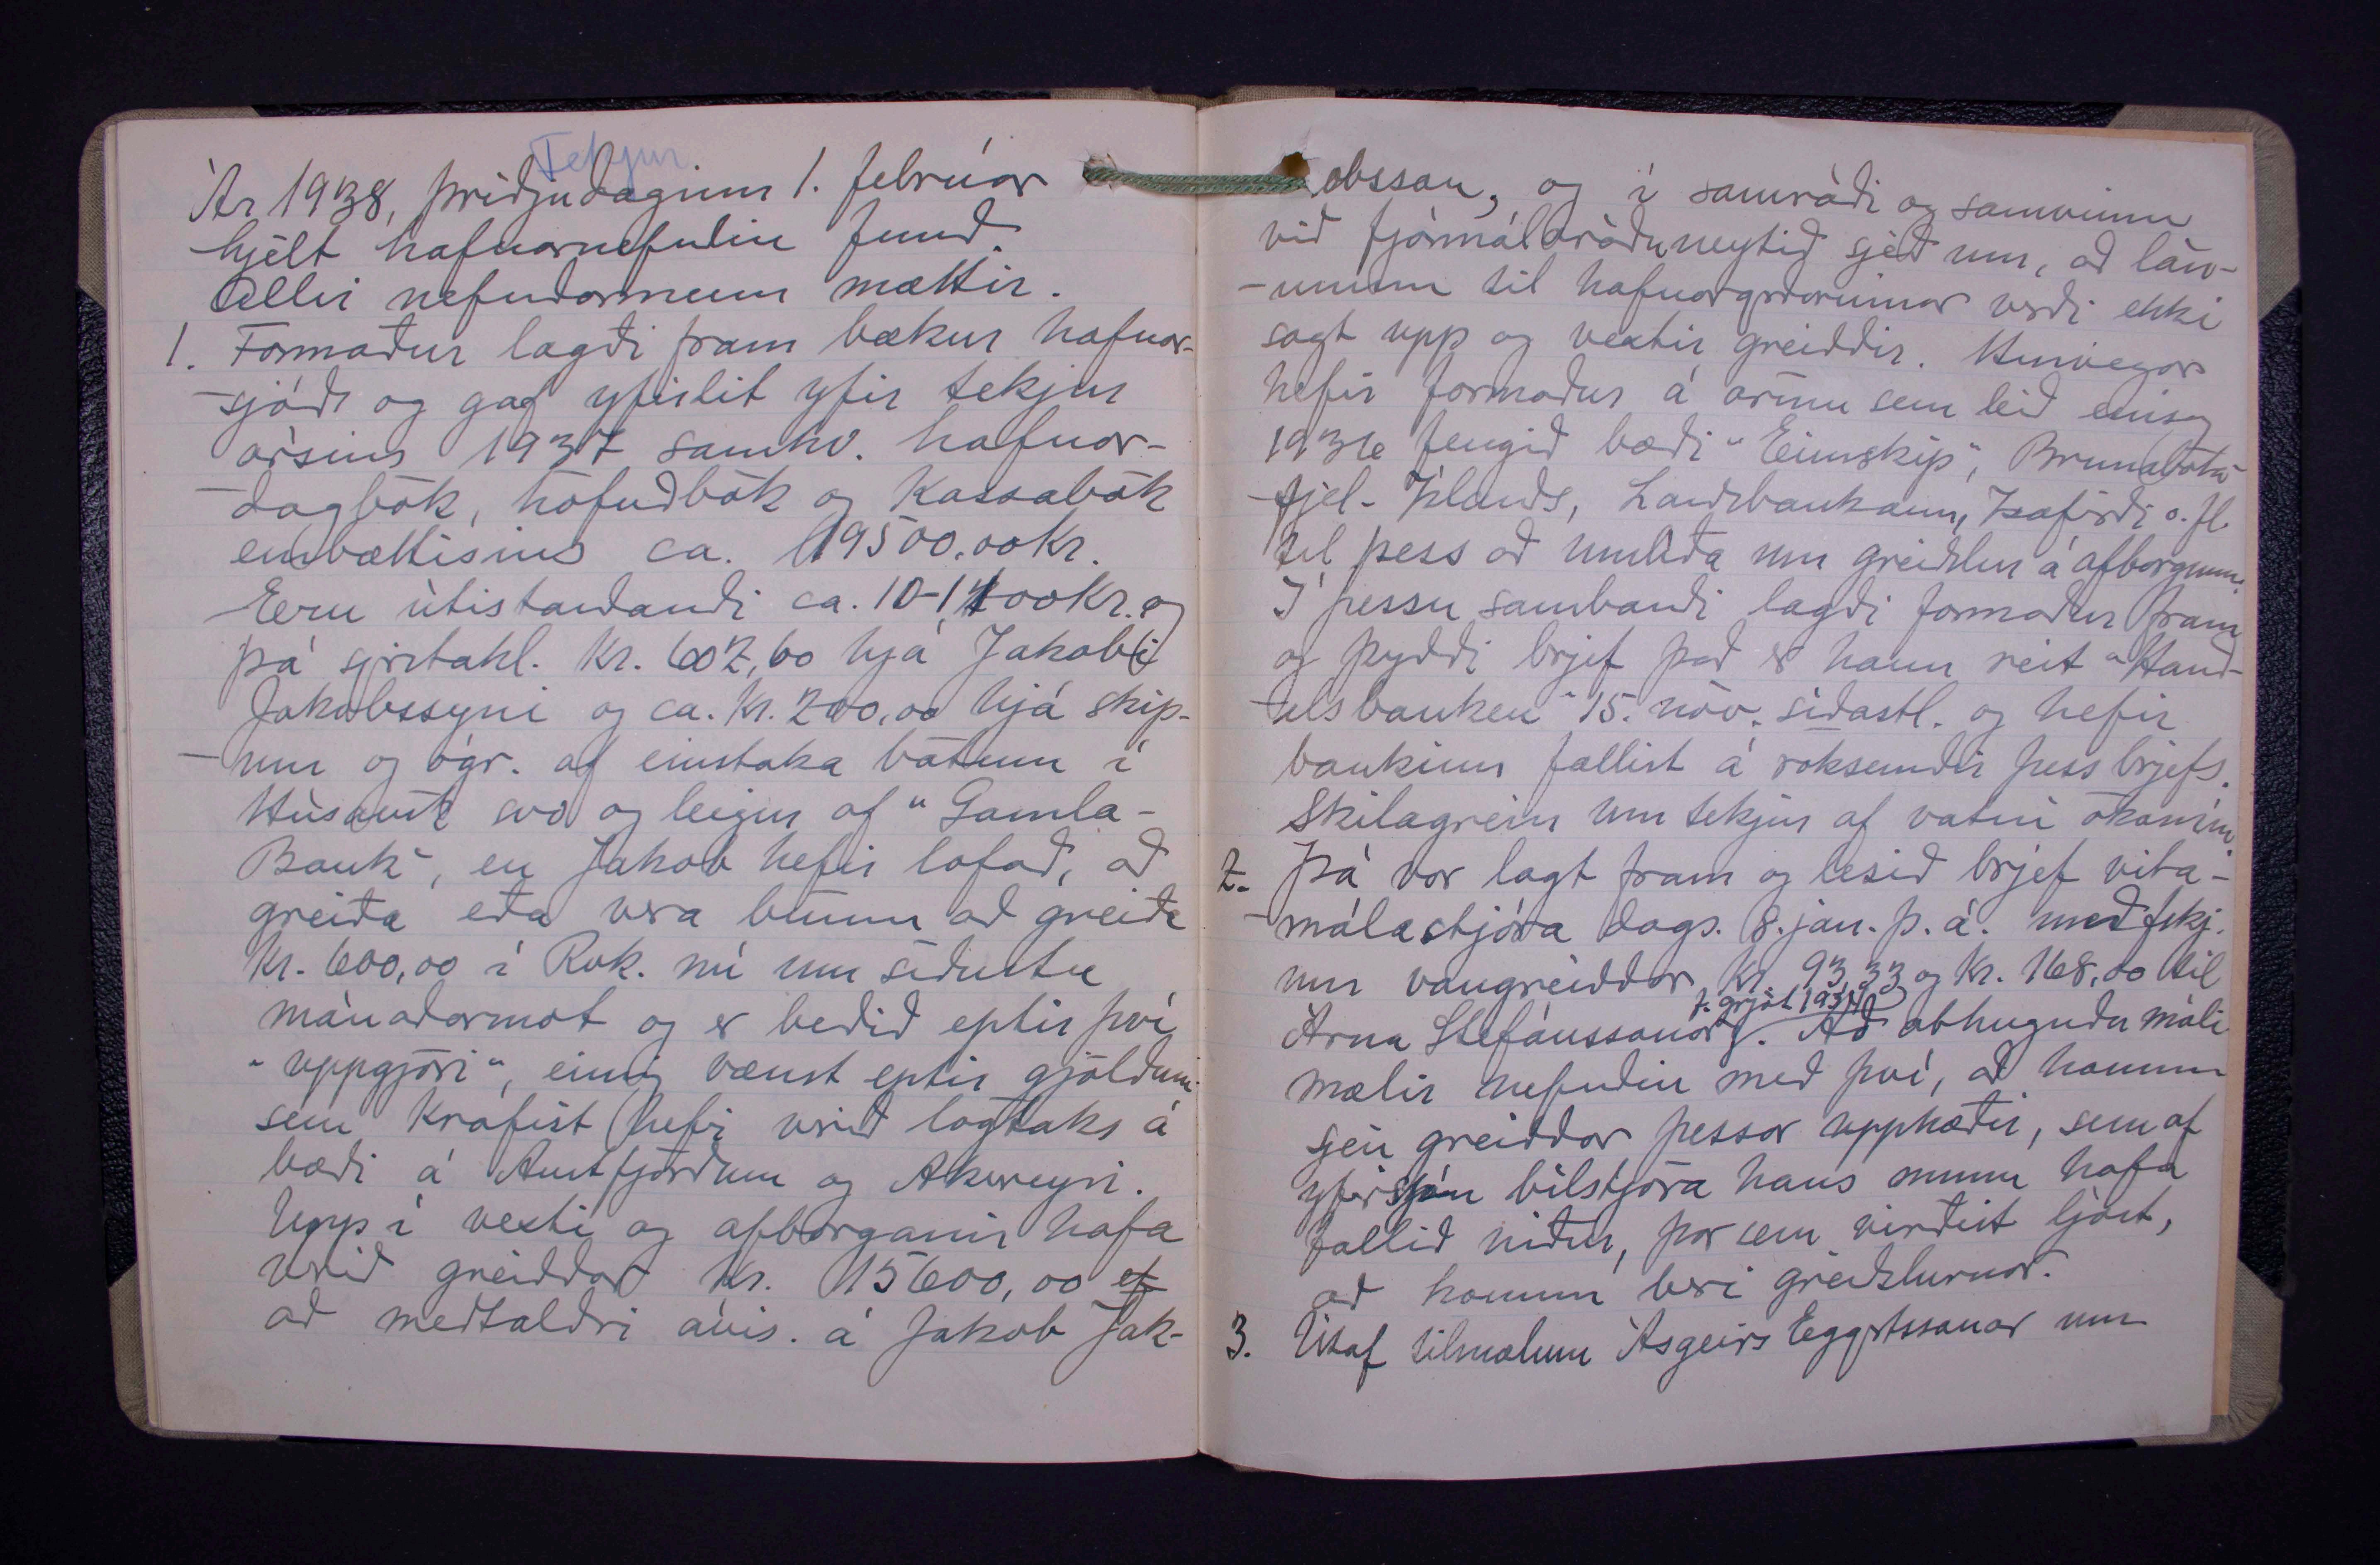 Tekjur
Ár 1938, þriðjudaginn 1. febrúar
hjelt hafnarnefndin fund.
Allir nefndarmenn mættir.
1. Formaður lagði fram bækur hafnar-
-sjóðs og gaf yfirlit yfir tekjur
ársins 1937 samkv. hafnar-
-dagbók, höfuðbók og Kassabók
embættisins ca. 19500.00 Kr.
Eru útistandandi ca. 10-1100 Kr. og
þá sjerstakl. Kr. 607,60 hjá Jakobi
Jakobssyni og ca. Kr. 200,00 hjá skip-
-um og ógr. af einstaka bátum í
Húsavík svo og leigur af "Gamla-
Bauk", en Jakob hefir lofað, að
greiða eða vera búinn að greiða
Kr. 600,00 í Rvk. nú um síðustu
mánaðarmót og er beðið eptir því
"uppgjöri", einnig vænst eptir gjöldum
sem krafist hefir verið lögtaks á
bæði á Austfjörðum og Akureyri.
Upp í vexti og afborganir hafa
verið greiddar Kr. 15600,00 ef
að meðtaldri ávís. á Jakob Jak-
obsson, og í samráði og samvinnu
við fjármálaráðuneytið sjeð um, að lán-
-unum til hafnargerðarinnar verði ekki
sagt upp og vextir greiddir. Hinvegar
hefir formaður á árinu sem leið eins og
1936 fengið bæði "Eimskip", Brunabóta-
fjel. Íslands, Landsbankann, Ísafirði o. fl.
til þess að umlíða um greiðslur á afborgunum.
Í þessu sambandi lagði formaður fram
og þýddi brjef það er hann reit "Hand-
-elsbanken" 15. nóv. síðastl. og hefir
bankinn fallist á röksemdir þess brjefs.
Skilagrein um tekjur af vatni ókomin.
2. Þá var lagt fram og lesið brjef vita-
-málastjóra dags. 8. jan. þ. á. með fskj.
um vangreiddar Kr. 93,33 og Kr. 168,00 til
f. grjót 1934
Árna Stefánssonar. Að athuguðu máli
mælir nefndin með því, að honum
sjeu greiddar þessar upphæðir, sem af
yfirsjón bílstjóra hans munu hafa
fallið niður, þar sem virðist ljóst,
að honum beri greiðslurnar.
3. Útaf tilmælum Ásgeirs Eggertssonar um